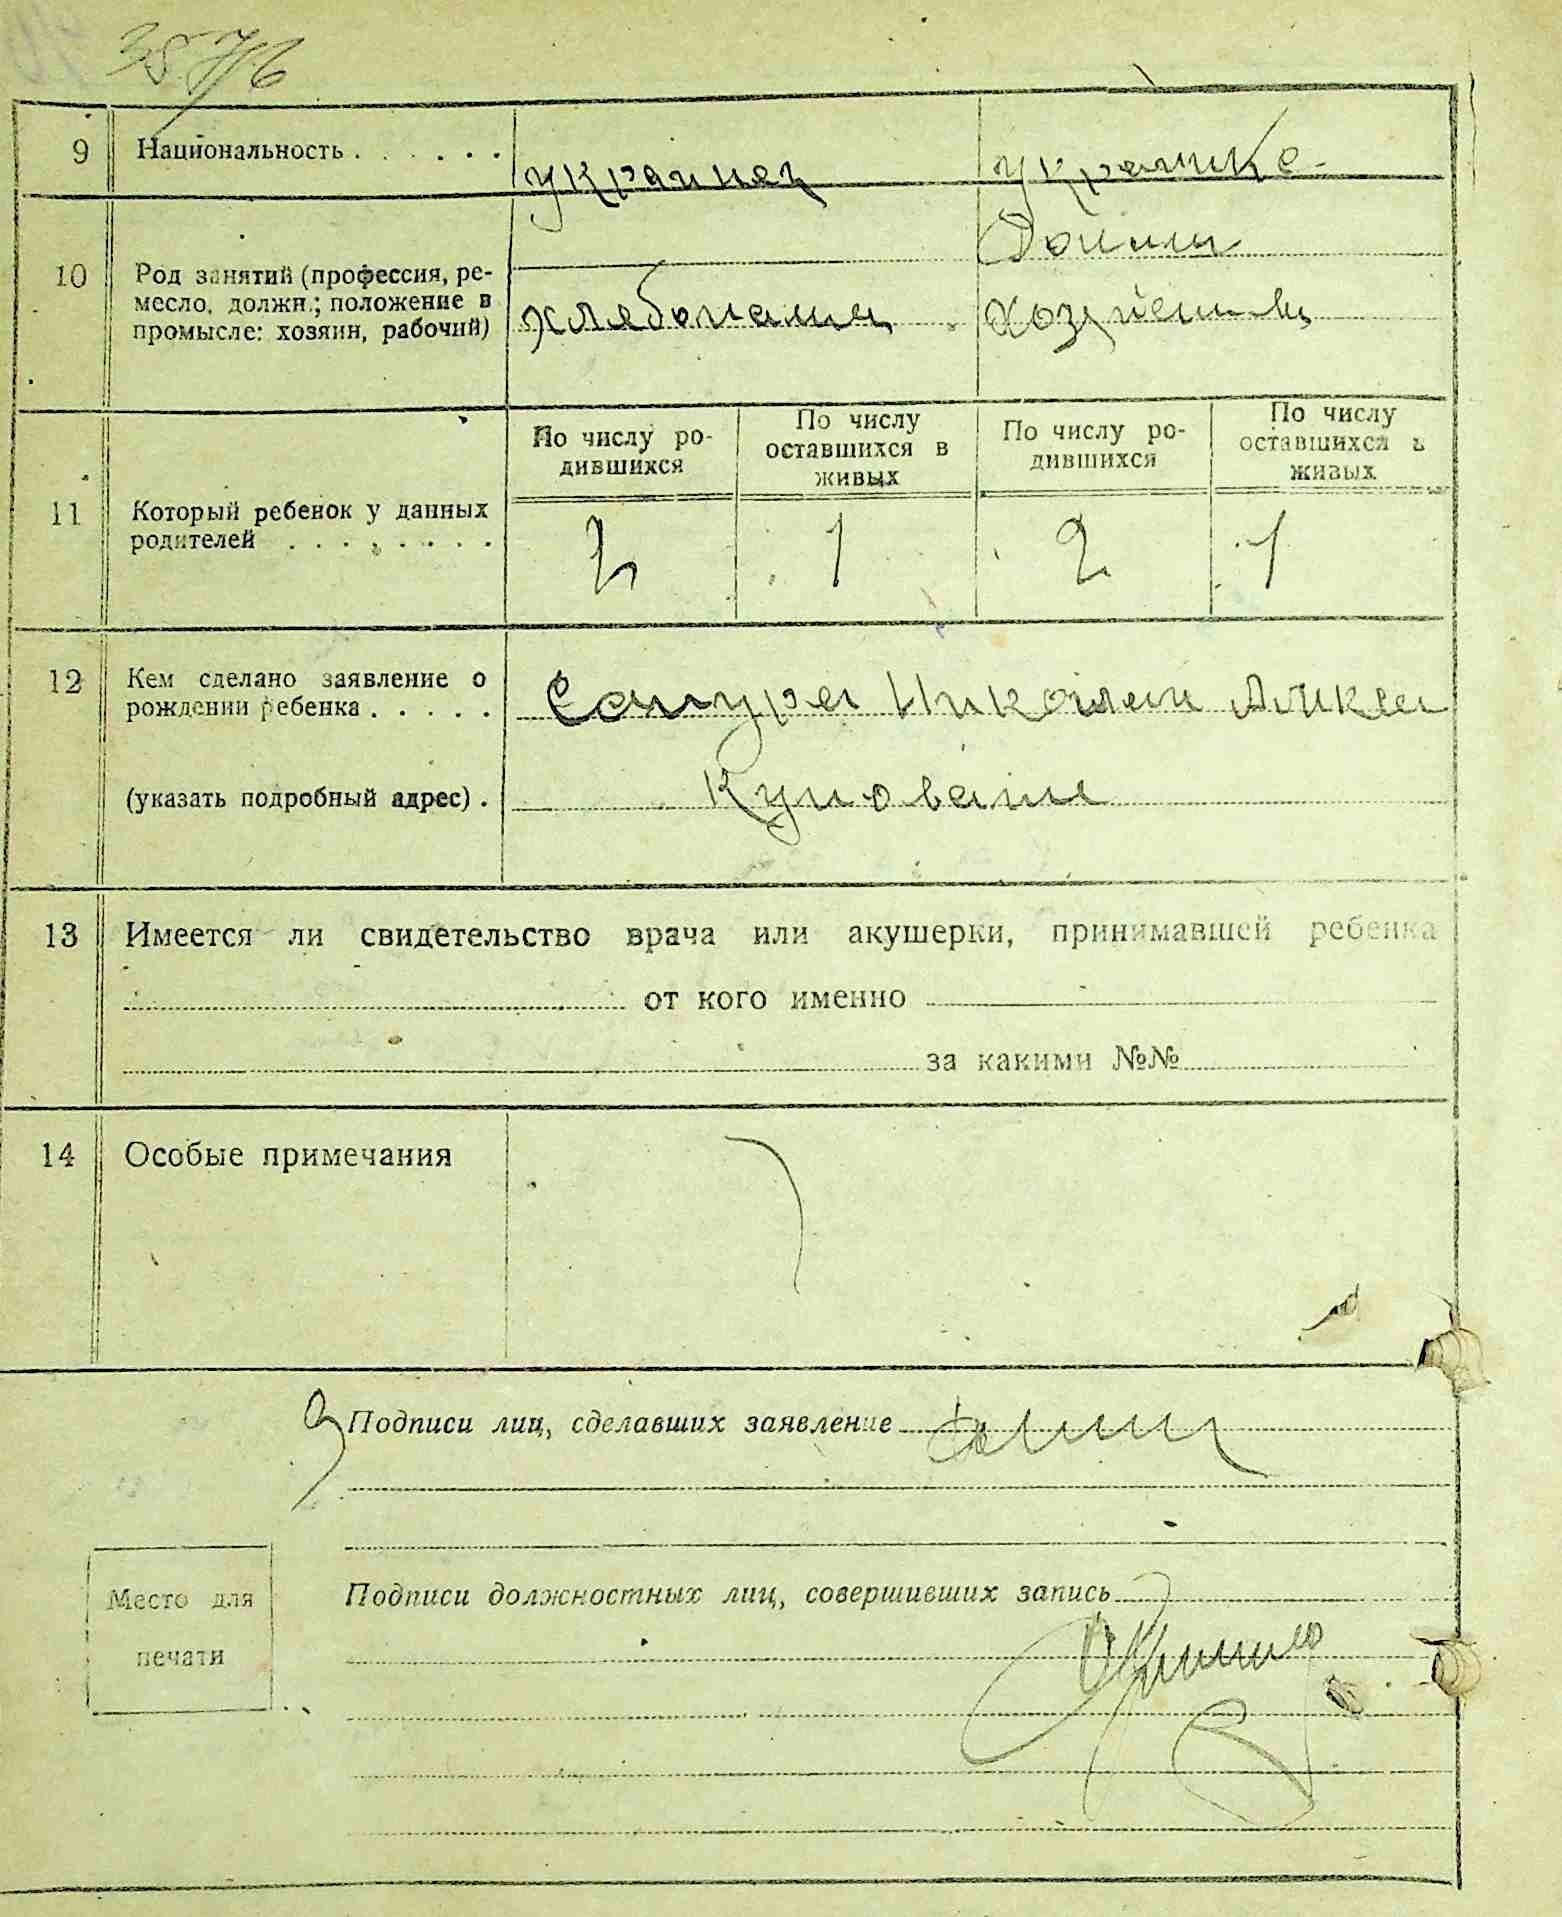 3576
9 Национальность . . . . . . украинец украинке
Домаш
10 Род занятий (профессия, ре-
месло, должн.; положение в
промысле: хозяин, рабочий)
хлебопашец хозяйств
По числу ро-
дившихся
По числу
оставшихся в
живых
По числу ро-
дившихся
По числу
оставшихся в
живых
11 Который ребенок у данных
родителей . . . . . . . .
2 1 2 1
12 Кем сделано заявление о
рождении ребенка . . . . .
Николай
(указать подробный адрес) .
13 Имеется ли свидетельство врача или акушерки, принимавшей ребенка
от кого именно
за какими №№
14 Особые примечания
За Подписи лиц, сделавших заявление
Подписи должностных лиц, совершивших запись
Место для
печати